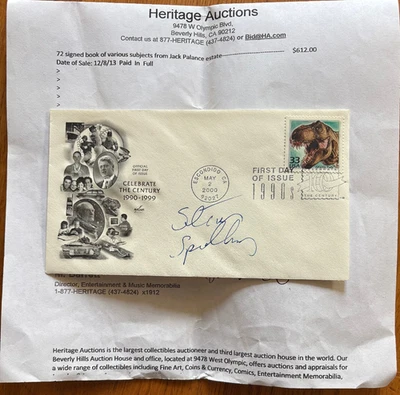 Heritage Auctions
9478 W Olympic Blvd,
Beverly Hills, CA 90212
Contact us at 877-HERITAGE (437-4824) or Bid@HA.com
72 signed book of various subjects from Jack Palance estate
$612.00
Date of Sale: 12/8/13 Paid In Full
>
>
>
>
OFFICIAL
FIRST DAY
OF ISSUE
CELEBRATE
THE CENTURY
1990-1999
ESCONDIDO, CA
MAY
2
2000
92027
33
FIRST DAY
OF ISSUE
1990s
Steven
Spielberg
Director, Entertainment & Music Memorabilia
1-877-HERITAGE (437-4824) x1812
>
Heritage Auctions is the largest collectibles auctioneer and third largest auction house in the world. Our
Beverly Hills Auction House and office, located at 9478 West Olympic, offers auctions and appraisals for
a wide range of collectibles including Fine Art, Coins & Currency, Comics, Entertainment Memorabilia,